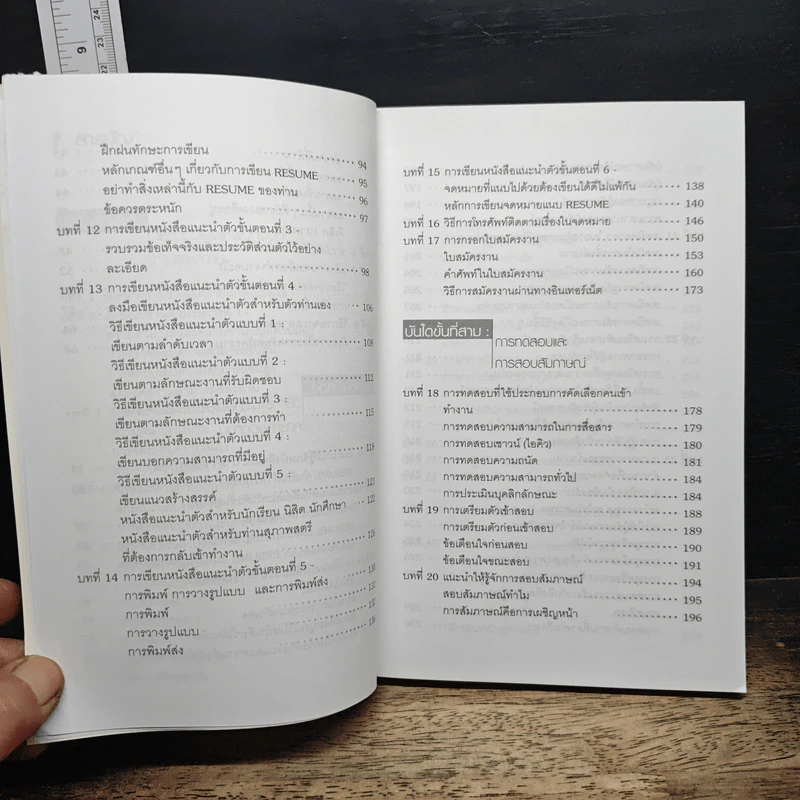 9
24
23
22
ฝึกฝนทักษะการเขียน 94
หลักเกณฑ์อื่นๆ เกี่ยวกับการเขียน RESUME 95
อย่าทำสิ่งเหล่านี้กับ RESUME ของท่าน 96
ข้อควรตระหนัก 97
บทที่ 12 การเขียนหนังสือแนะนำตัวขั้นตอนที่ 3 -
รวบรวมข้อเท็จจริงและประวัติส่วนตัวไว้อย่าง
ละเอียด 98
บทที่ 13 การเขียนหนังสือแนะนำตัวขั้นตอนที่ 4 -
ลงมือเขียนหนังสือแนะนำตัวสำหรับตัวท่านเอง 106
วิธีเขียนหนังสือแนะนำตัวแบบที่ 1 :
เขียนตามลำดับเวลา 108
วิธีเขียนหนังสือแนะนำตัวแบบที่ 2 :
เขียนตามลักษณะงานที่รับผิดชอบ 112
วิธีเขียนหนังสือแนะนำตัวแบบที่ 3 :
เขียนตามลักษณะงานที่ต้องการทำ 115
วิธีเขียนหนังสือแนะนำตัวแบบที่ 4 :
เขียนบอกความสามารถที่มีอยู่ 118
วิธีเขียนหนังสือแนะนำตัวแบบที่ 5 :
เขียนแนวสร้างสรรค์ 121
หนังสือแนะนำตัวสำหรับนักเรียน นิสิต นักศึกษา 122
หนังสือแนะนำตัวสำหรับท่านสุภาพสตรี
ที่ต้องการกลับเข้าทำงาน
บทที่ 14 การเขียนหนังสือแนะนำตัวขั้นตอนที่ 5 -
การพิมพ์ การวางรูปแบบ และการพิมพ์ส่ง 130
การพิมพ์ 132
การวางรูปแบบ
การพิมพ์ส่ง
บทที่ 15 การเขียนหนังสือแนะนำตัวขั้นตอนที่ 6 -
จดหมายที่แนบไปด้วยต้องเขียนได้ดีไม่แพ้กัน 138
หลักการเขียนจดหมายแนบ RESUME 140
บทที่ 16 วิธีการโทรศัพท์ติดตามเรื่องในจดหมาย 146
บทที่ 17 การกรอกใบสมัครงาน 150
ใบสมัครงาน 153
คำศัพท์ในใบสมัครงาน 160
วิธีการสมัครงานผ่านทางอินเทอร์เน็ต 173
บันไดขั้นที่สาม :
การทดสอบและ
การสอบสัมภาษณ์
บทที่ 18 การทดสอบที่ใช้ประกอบการคัดเลือกคนเข้า
ทำงาน 178
การทดสอบความสามารถในการสื่อสาร 179
การทดสอบเชาวน์ (ไอคิว) 180
การทดสอบความถนัด 181
การทดสอบความสามารถทั่วไป 184
การประเมินบุคลิกลักษณะ 184
บทที่ 19 การเตรียมตัวเข้าสอบ 188
การเตรียมตัวก่อนเข้าสอบ 189
ข้อเตือนใจก่อนสอบ 190
ข้อเตือนใจขณะสอบ 191
บทที่ 20 แนะนำให้รู้จักการสอบสัมภาษณ์ 194
สอบสัมภาษณ์ทำไม 195
การสัมภาษณ์คือการเผชิญหน้า 196